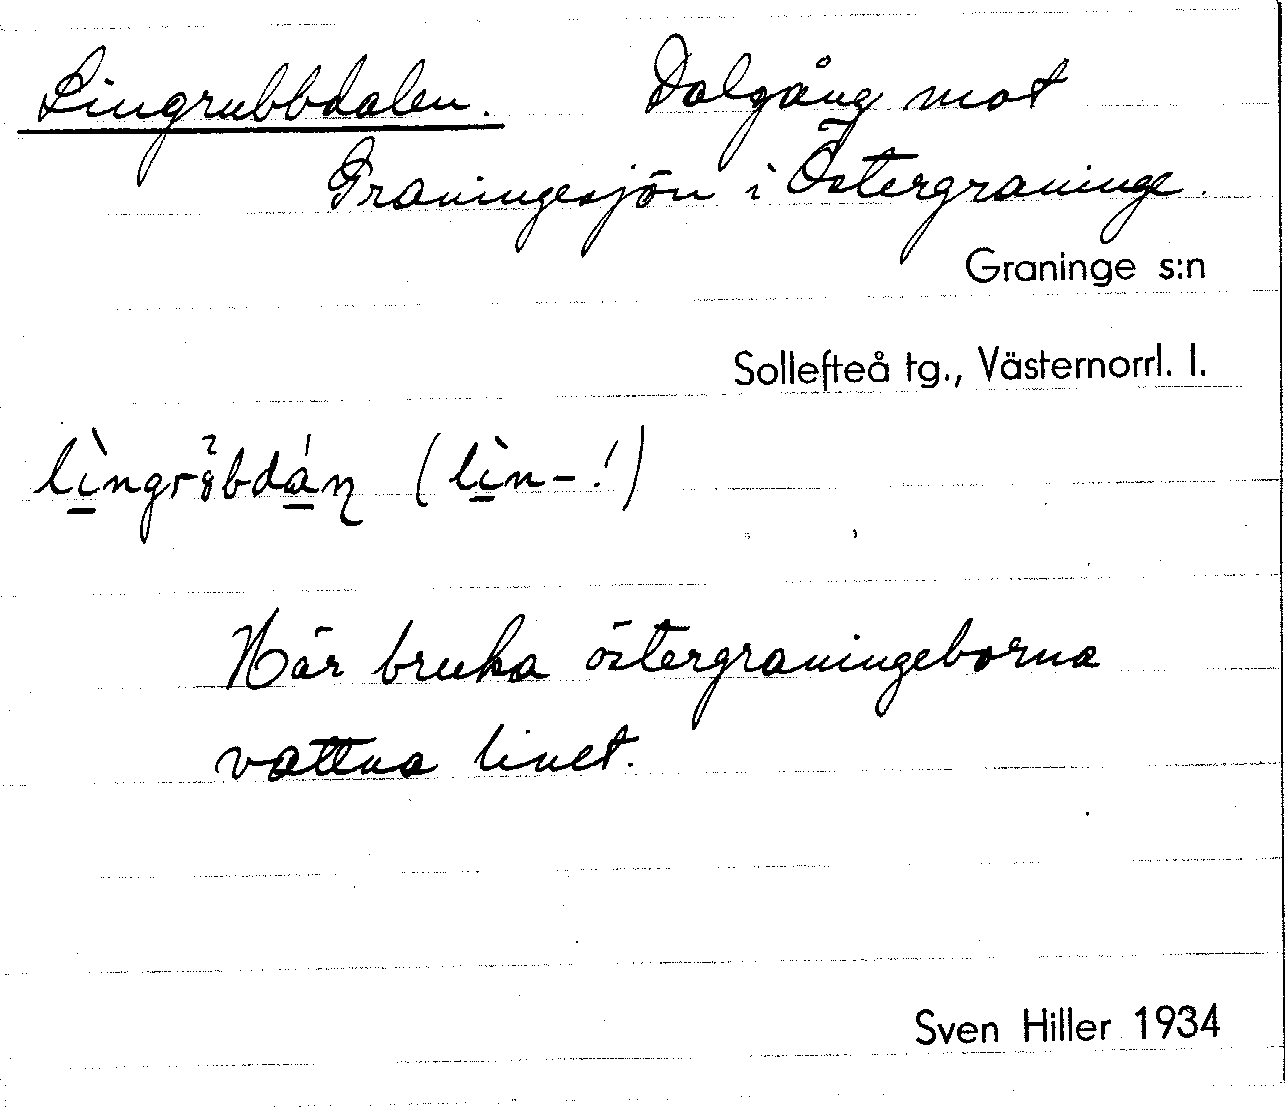 Lingrubbdalen. Dalgång mot
Graningesjön i Östergraninge.
Graninge s:n
Sollefteå tg., Västernorrl. l.
(lìn-!)
Här bruka östergraningeborna
vattna linet.
Sven Hiller 1934